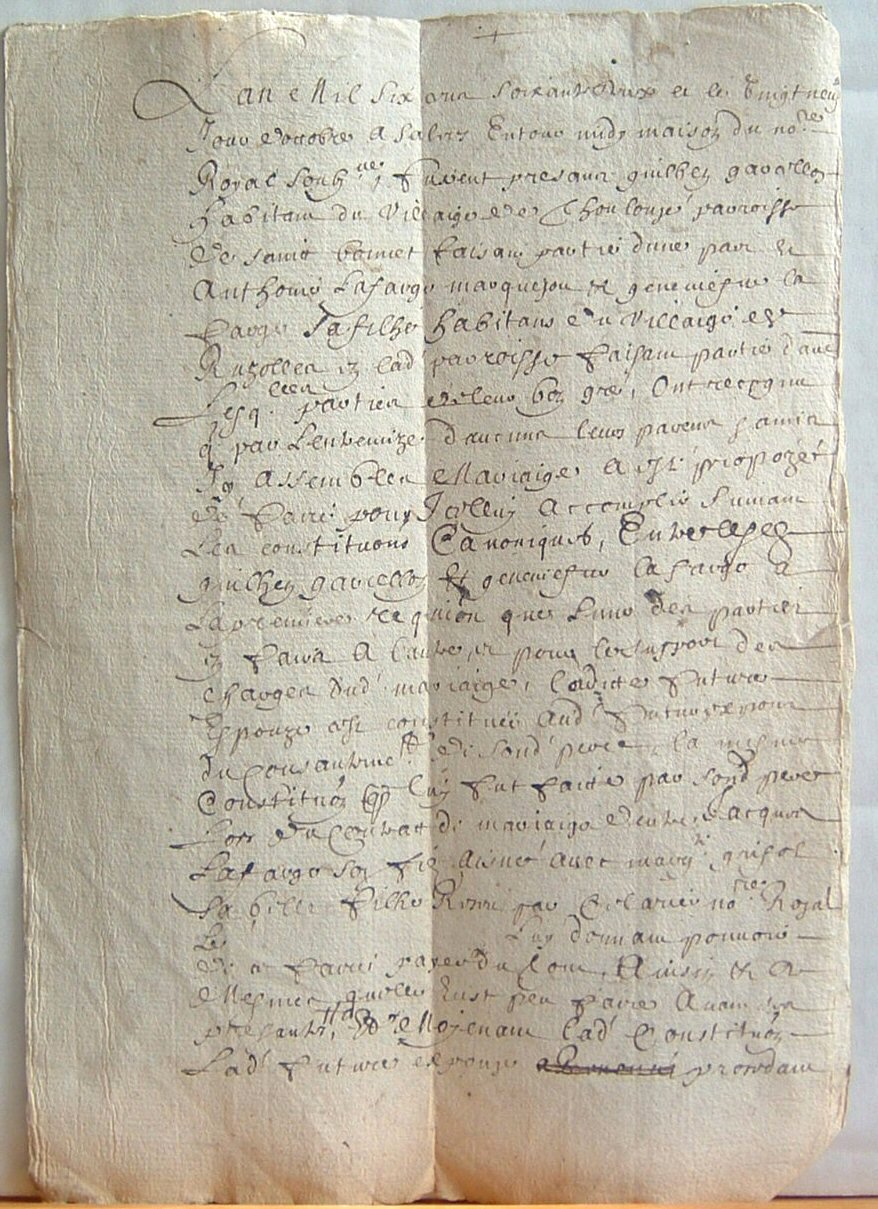 Lan Mil six cens soixante deux et le vingt neuf
Jour doctobre a Salers Entour midy maison du no.re
Royal soubz.ne, furent presans guilhen gavallon
habitant du Villaige de Chouloux parroisse
de sainct bonnet faisant partie dune part &
Anthoine Lafarge marquejou & geneviefve la
farge sa filhe habitans du Villaige de
Ruzolles en lad parroisse faisant partie dautre
Lesq.lles parties de leur bon gre, Ont recogneu
q par Lentremize daucuns leurs parens & amis
Icy Assembles Mariaige A est propozé
de faire pour Icelluy Accomplir suivant
Les constituons Canoniques, Entre lesd
guilhen gavellon Et geneviefve lafarge a
La premiere requion que Lune des parties
en faira A lautre, et pour le support des
charges dud mariaige, ladite future
Espouze est constituée Aud futur expoux
du consantem.t de sond pere, la mesme
Constituon q luy fut faite par sond pere
Lors du Contract de mariaige dentre Jacques
Lafarge son filz aisné avec marg.te
sa belle filhe Receu par no.re Royal
Le Luy donnant pouvoir
de se faire payer du tout, Ainsin & de
Mesmes quelle Eust peu faire Avant les
presantes, Moyenant lad Constituon
Lad future expouze procedant